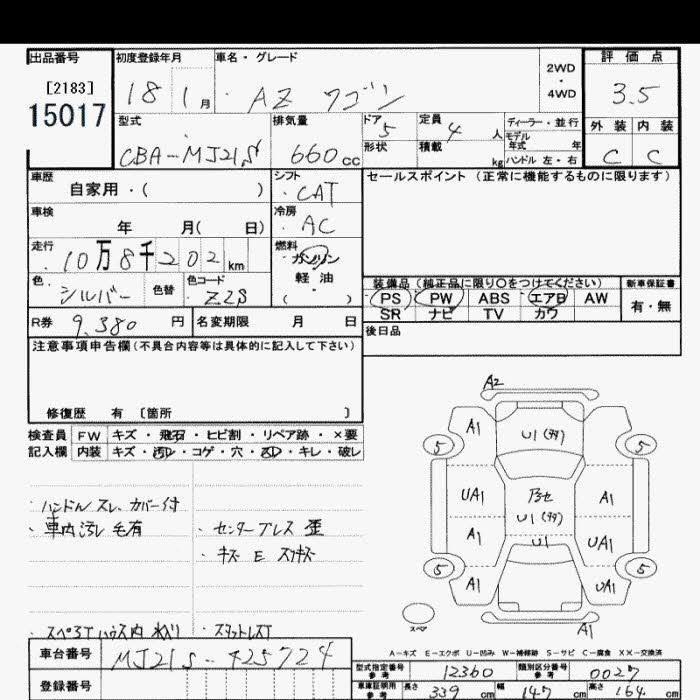 出品番号 初度登録年月 車名・グレード 評価点
[2183] 18 1月 AZ ワゴン 2WD・4WD 3.5
15017
型式 排気量 ドア 5 定員 4人 ディーラー・並行 外装 内装
CBA-MJ21S 660cc 形状 積載 kg モデル年式 年 ハンドル 左・右 C C
車歴 シフト セールスポイント (正常に機能するものに限ります)
自家用・( ) CAT
車検 冷房
年 月( 日) AC
走行 燃料
10万8千202km ガソリン
軽油
色 色替 色コード ( )
シルバー Z2S
装備品 (純正品に限り○をつけてください) 新車保証書
PS PW ABS エアB AW 有・無
SR ナビ TV カワ
R券 9,380円 名変期限 月 日
後日品
注意事項申告欄(不具合内容等は具体的に記入して下さい)
修復歴 有 〔箇所 〕
検査員 FW キズ・飛石・ヒビ割・リペア跡・×要
記入欄 内装 キズ・汚れ・コゲ・穴・スレ・キレ・破レ
・ハンドル スレ カバー付
・車内汚レ 毛有 ・センタープレス 歪
・キズ E スリキズ
A2
A1 U1
5 5
UA1 A1
U1
A1 U1 UA1
5 5
A1 UA1
スペア A1
A-キズ E-エクボ U-凹み W-補修跡 S-サビ C-腐食 XX-交換済
車台番号 MJ21S-425724
型式指定番号 参考 12360 類別区分番号 参考 0027
登録番号
車庫証明用 参考 長さ 339cm 幅 147cm 高さ 164cm